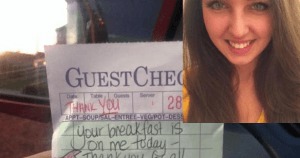 GUESTCHEC
Date Table Guests Server
THANK YOU 28
APPT-SOUP/SAL-ENTREE-VEG/POT-DES
Your breakfast is
on me today -
Thank you all